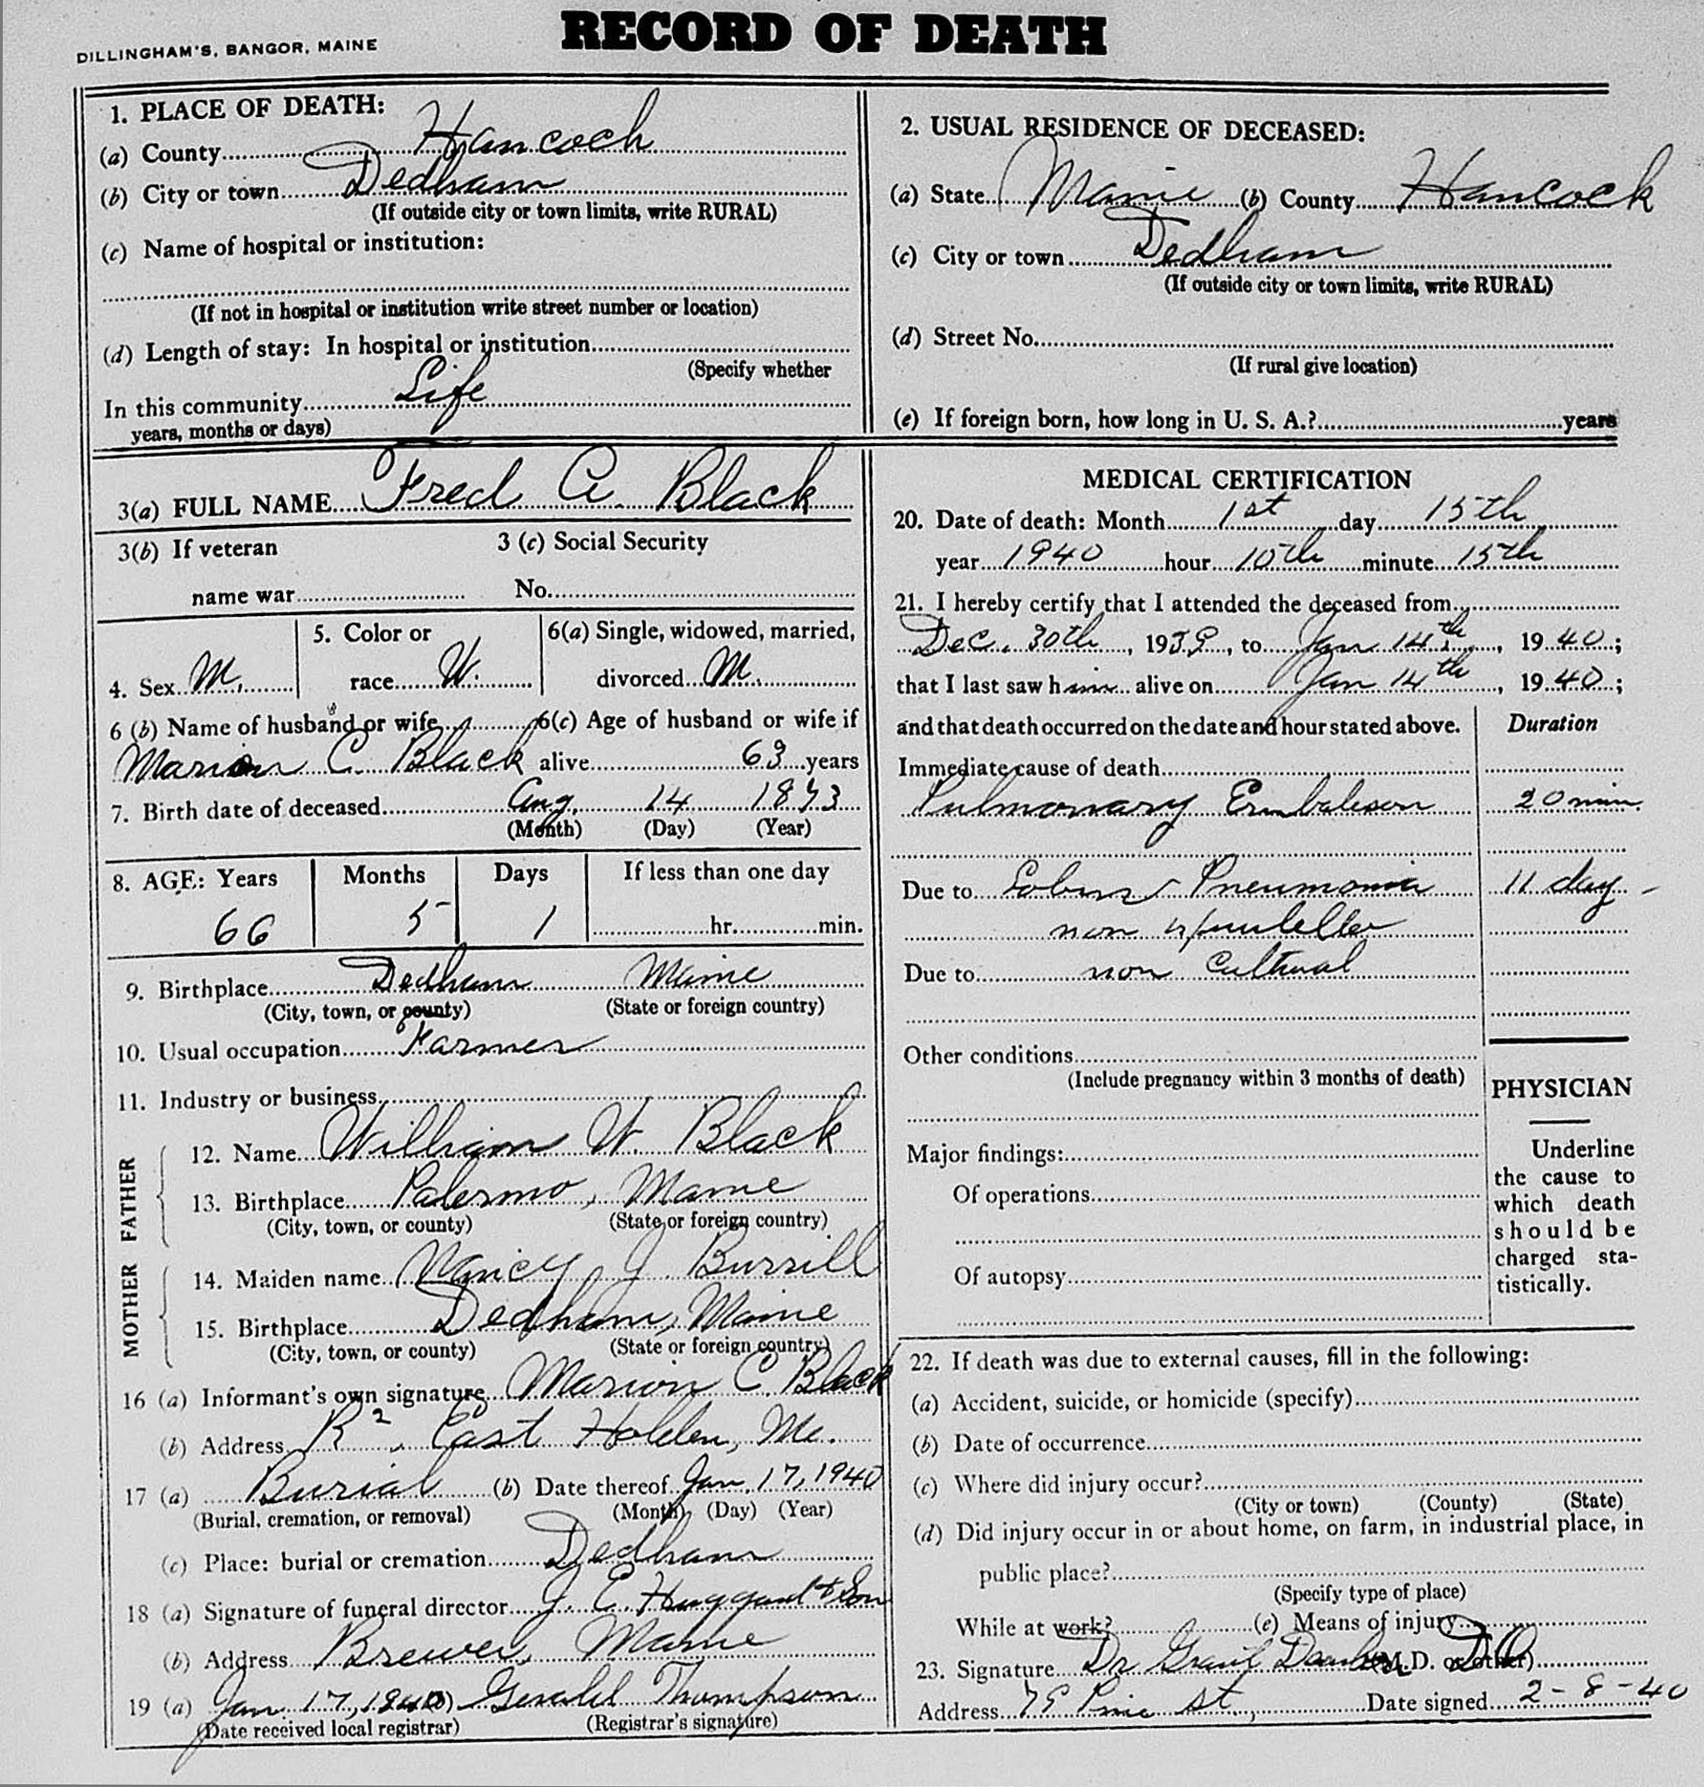 RECORD OF DEATH
DILLINGHAM'S, BANGOR, MAINE
1. PLACE OF DEATH:
(a) County Hancock
(b) City or town Dedham
(If outside city or town limits, write RURAL)
(c) Name of hospital or institution:
(If not in hospital or institution write street number or location)
(d) Length of stay: In hospital or institution
(Specify whether
In this community Life
years, months or days)
2. USUAL RESIDENCE OF DECEASED:
(a) State Maine (b) County Hancock
(c) City or town Dedham
(If outside city or town limits, write RURAL)
(d) Street No.
(If rural give location)
(e) If foreign born, how long in U. S. A.? years
3(a) FULL NAME Fred A. Black
3(b) If veteran 3 (c) Social Security
name war No.
4. Sex M. 5. Color or race W. 6(a) Single, widowed, married, divorced M.
6 (b) Name of husband or wife 6(c) Age of husband or wife if
Marion C. Black alive 63 years
7. Birth date of deceased Aug. 14 1873
(Month) (Day) (Year)
8. AGE: Years Months Days If less than one day
66 5 1 hr. min.
9. Birthplace Dedham Maine
(City, town, or county) (State or foreign country)
10. Usual occupation Farmer
11. Industry or business
FATHER
12. Name William W. Black
13. Birthplace Palermo, Maine
(City, town, or county) (State or foreign country)
MOTHER
14. Maiden name Nancy J. Burrill
15. Birthplace Dedham, Maine
(City, town, or county) (State or foreign country)
16 (a) Informant's own signature Marion C. Black
(b) Address R 2, East Holden, Me.
17 (a) Burial (b) Date thereof Jan. 17, 1940
(Burial, cremation, or removal) (Month) (Day) (Year)
(c) Place: burial or cremation Dedham
18 (a) Signature of funeral director J. E. & Son
(b) Address Brewer, Maine
19 (a) Jan 17, Gerald Thompson
(Date received local registrar) (Registrar's signature)
MEDICAL CERTIFICATION
20. Date of death: Month 1st day 15th
year 1940 hour 10th minute 15th
21. I hereby certify that I attended the deceased from
Dec. 30th, 1939, to Jan 14th, 1940;
that I last saw him alive on Jan 14th, 1940;
and that death occurred on the date and hour stated above. Duration
Immediate cause of death
Pulmonary Embolism 20 min.
Due to Pneumonia 11 day
non
Due to non
Other conditions
(Include pregnancy within 3 months of death)
Major findings:
Of operations
Of autopsy
PHYSICIAN
Underline
the cause to
which death
should be
charged sta-
tistically.
22. If death was due to external causes, fill in the following:
(a) Accident, suicide, or homicide (specify)
(b) Date of occurrence
(c) Where did injury occur?
(City or town) (County) (State)
(d) Did injury occur in or about home, on farm, in industrial place, in
public place?
(Specify type of place)
While at work? (e) Means of injury
23. Signature Dr (M.D. or other) D.O.
Address St., Date signed 2-8-40